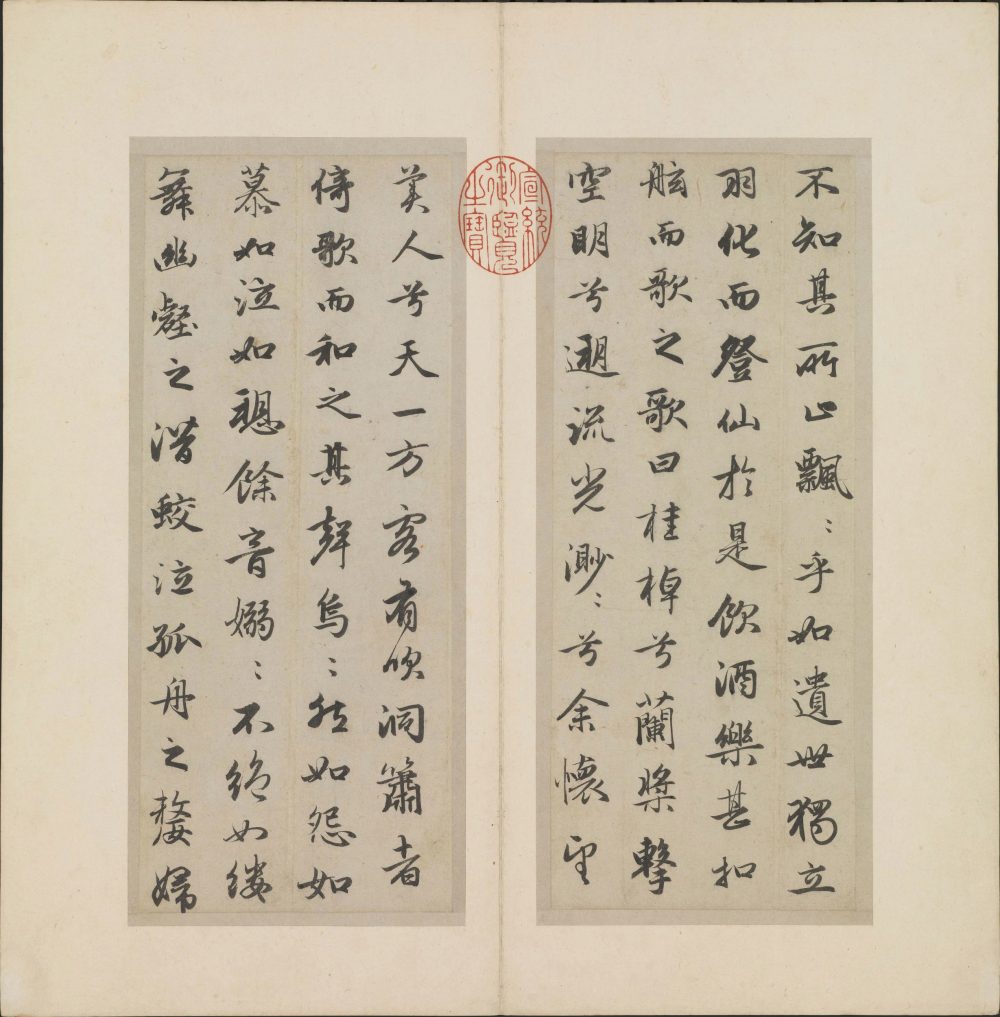 不知其所止飄〻乎如遺世獨立
羽化而登仙於是飲酒樂甚扣
舷而歌之歌曰桂棹兮蘭槳擊
空明兮遡流光渺〻兮余懷望
美人兮天一方客有吹洞簫者
倚歌而和之其聲烏〻然如怨如
慕如泣如訴餘音嫋〻不絕如縷
舞幽壑之潛蛟泣孤舟之嫠婦
宣統
御覽
之寶